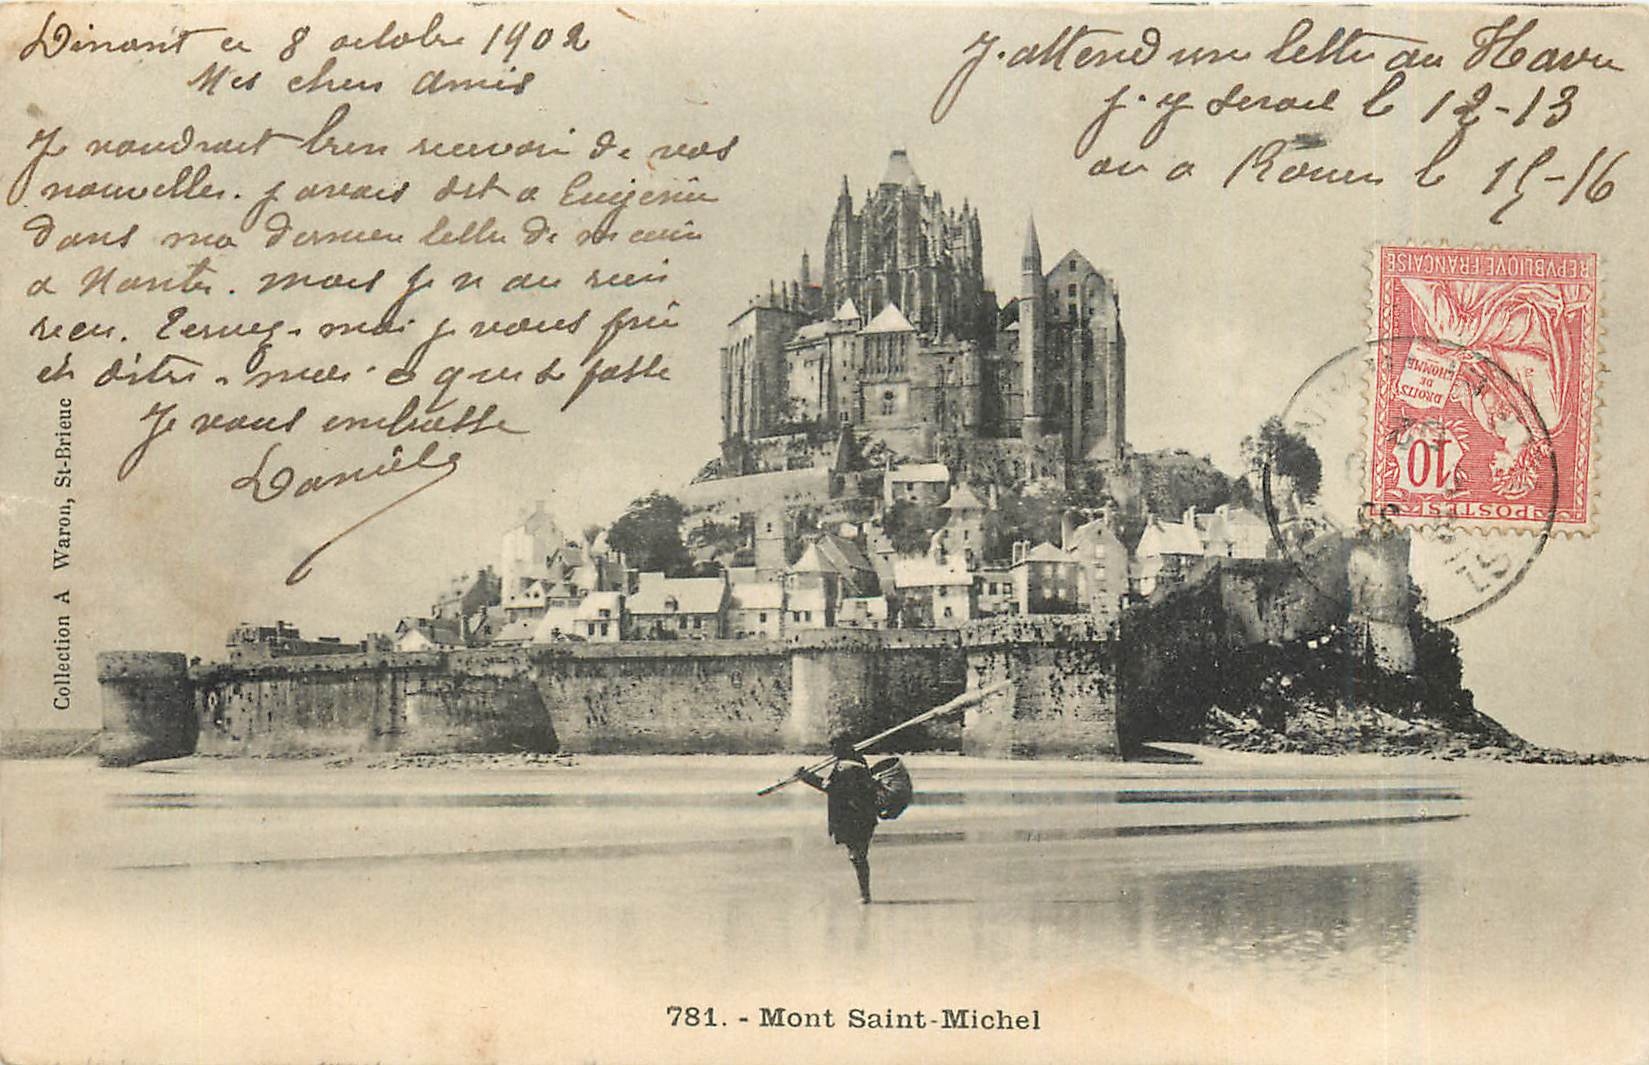 Dinant ce 8 octobre 1902
Mes chers Amis
Je voudrait bien recevoir de vos
nouvelles. j avais dit a Eugenie
dans ma dernier lettre de m ecrire
a Nantes. mais je n ai rien
recu. Ecrivez-moi je vous prie
et dites-moi ce que se passe
Je vous embrasse
Daniel
J. attend une lettre au Havre
j. y serait le 12-13
ou a Rouen le 15-16
REPVBLIQVE FRANÇAISE
DROITS DE L'HOMME
10
POSTES
Collection A Waron, St-Brieuc
781. - Mont Saint-Michel